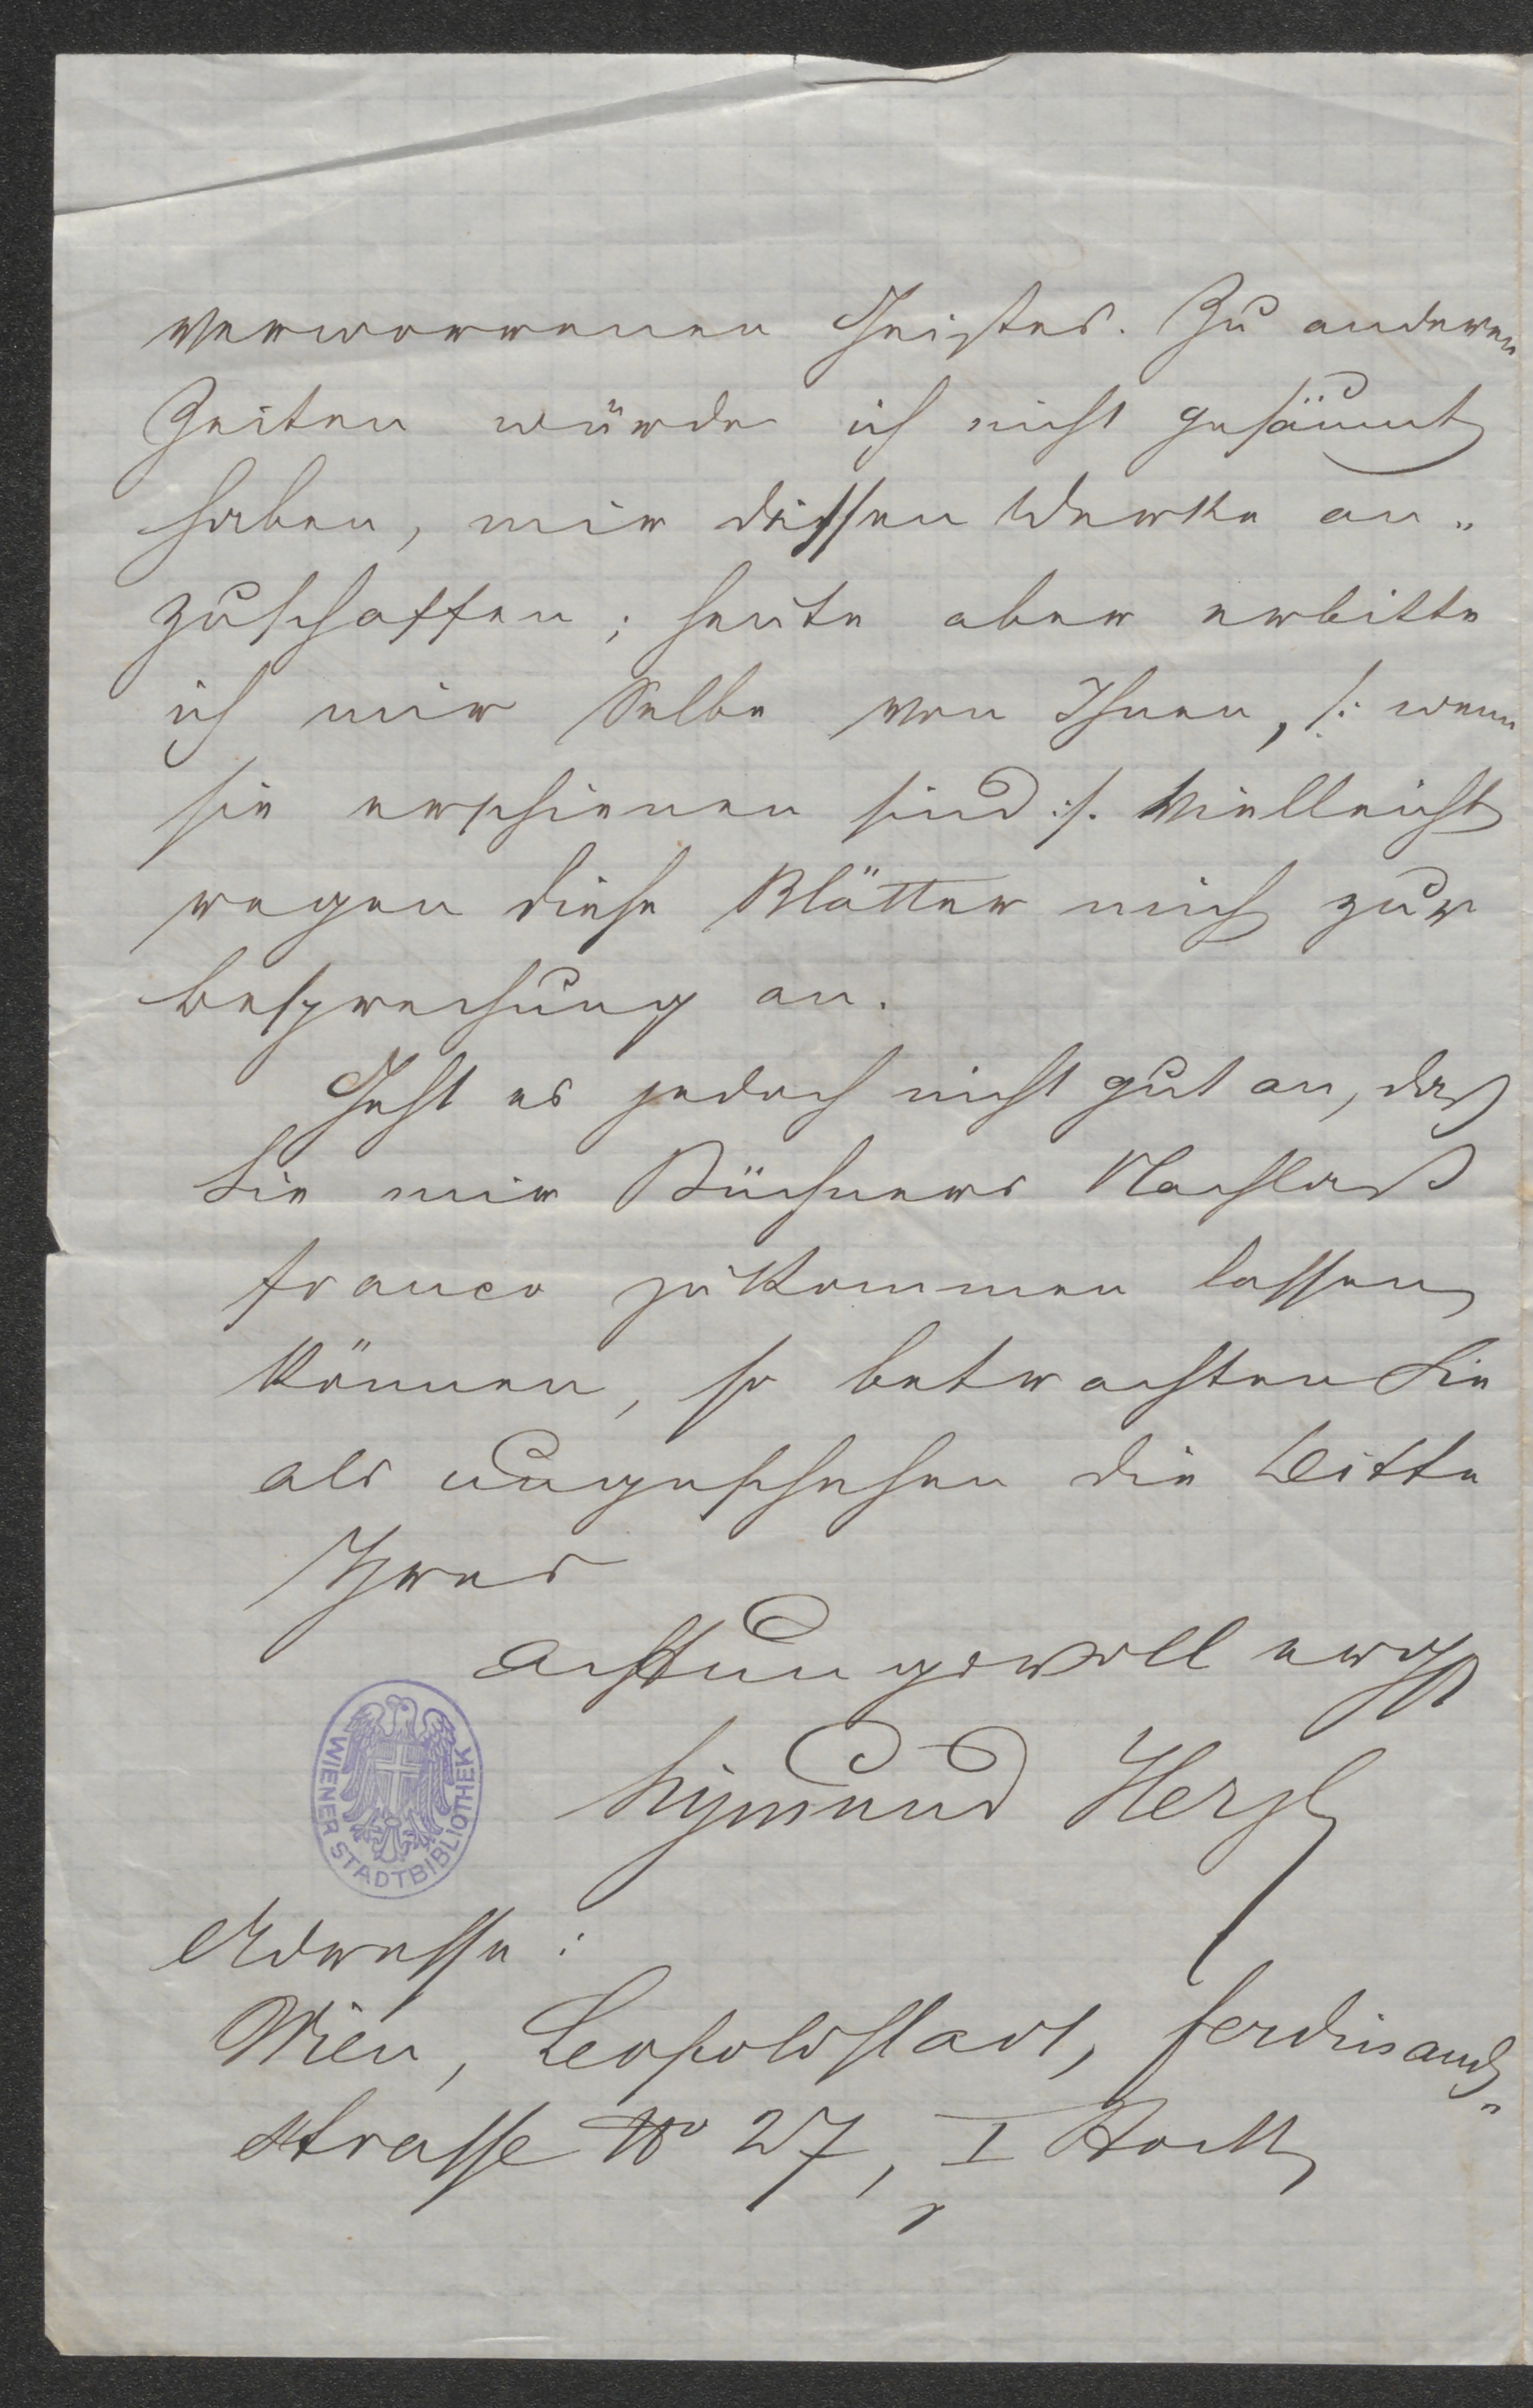 verworrenen Geistes. Zu anderen
Zeiten würde ich nicht gesäumt
haben, mir dessen Werke an„
zuschaffen; heute aber erbitte
ich mir Selbe von Ihnen, /: wenn
sie erschienen sind :/. Vielleicht
regen diese Blätter mich zur
Besprechung an.
Geht es jedoch nicht gut an, daß
Sie mir Büchners Nachlaß
franco zukommen lassen
können, so betrachten Sie
als ungeschehen die Bitte
Ihres
achtungsvoll ergst
Sigmund Herzl
WIENER STADTBIBLIOTHEK
Adresse:
Wien, Leopoldstadt, Ferdinands„
strasse No 27, I Stock